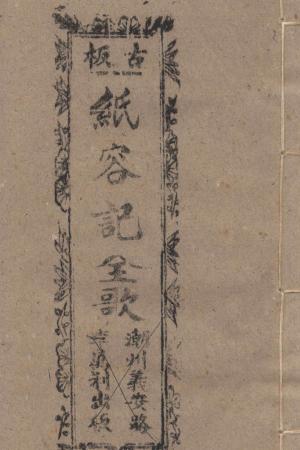 古板
紙容記全歌
潮州義安路
利出版